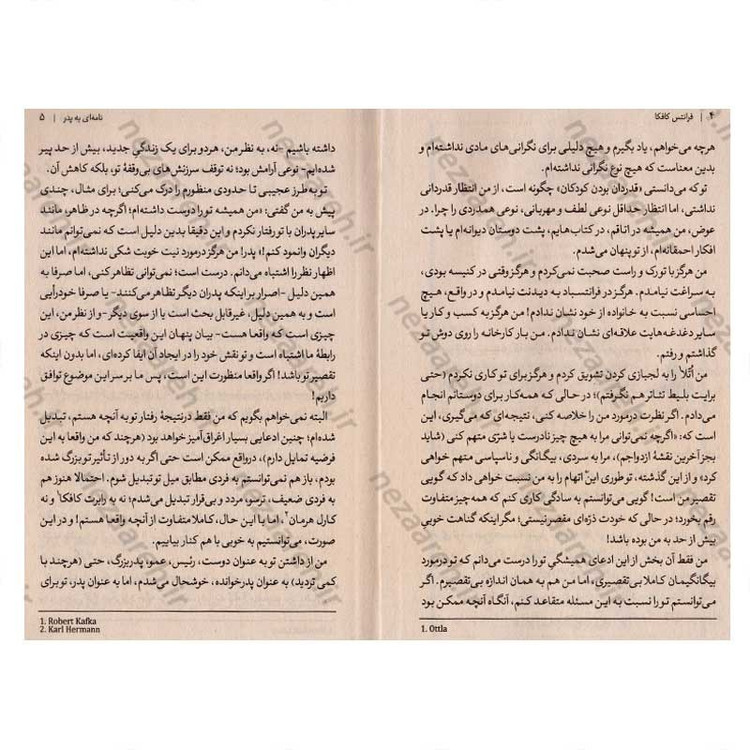 ۴ | فرانتس کافکا
هرچه می‌خواهم، یاد بگیرم و هیچ دلیلی برای نگرانی‌های مادی نداشته‌ام و
بدین معناست که هیچ نوع نگرانی نداشته‌ام.
تو که می‌دانستی «قدردان بودن کودکان» چگونه است، از من انتظار قدردانی
نداشتی، اما انتظار حداقل نوعی لطف و مهربانی، نوعی همدردی را چرا. در
عوض، من همیشه در اتاقم، در کتاب‌هایم، پشت دوستان دیوانه‌ام یا پشت
افکار احمقانه‌ام، از تو پنهان می‌شدم.
من هرگز با تو رک و راست صحبت نمی‌کردم و هرگز وقتی در کنیسه بودی،
به سراغت نیامدم. هرگز در فرانتسباد به دیدنت نیامدم و در واقع، هیچ
احساسی نسبت به خانواده از خود نشان ندادم! من هرگز به کسب و کار یا
سایر دغدغه‌هایت علاقه‌ای نشان ندادم. من بار کارخانه را روی دوش تو
گذاشتم و رفتم.
من اُتلا¹ را به لجبازی کردن تشویق کردم و هرگز برای تو کاری نکردم (حتی
برایت بلیط تئاتر هم نگرفتم)؛ در حالی که همه‌کار برای دوستانم انجام
می‌دادم. اگر نظرت درمورد من را خلاصه کنی، نتیجه‌ای که می‌گیری، این
است که: «اگرچه نمی‌توانی مرا به هیچ چیز نادرست یا شرّی متهم کنی (شاید
بجز آخرین نقشهٔ ازدواجم)، مرا به سردی، بیگانگی و ناسپاسی متهم خواهی
کرد» و از این گذشته، تو طوری این اتهام را به من نسبت خواهی داد که گویی
تقصیر من است! گویی می‌توانستم به سادگی کاری کنم که همه‌چیز متفاوت
رقم بخورد؛ در حالی که خودت ذرّه‌ای مقصر نیستی؛ مگر اینکه گناهت خوبیِ
بیش از حد به من بوده باشد!
من فقط آن بخش از این ادعای همیشگیِ تو را درست می‌دانم که تو درمورد
بیگانگیمان کاملا بی‌تقصیری، اما من هم به همان اندازه بی‌تقصیرم. اگر
می‌توانستم تو را نسبت به این مسئله متقاعد کنم، آنگاه آنچه ممکن بود
1. Ottla
نامه‌ای به پدر | ۵
داشته باشیم -نه، به نظر من، هر دو برای یک زندگیِ جدید، بیش از حد پیر
شده‌ایم- نوعی آرامش بود؛ نه توقف سرزنش‌های بی‌وقفهٔ تو، بلکه کاهش آن.
تو به طرز عجیبی تا حدودی منظورم را درک می‌کنی؛ برای مثال، چندی
پیش به من گفتی: «من همیشه تو را دوست داشته‌ام؛ اگرچه در ظاهر، مانند
سایر پدران با تو رفتار نکردم و این دقیقا بدین دلیل است که نمی‌توانم مانند
دیگران وانمود کنم!»، پدر! من هرگز درمورد نیت خوبت شکی نداشته‌ام، اما این
اظهار نظر را اشتباه می‌دانم. درست است؛ نمی‌توانی تظاهر کنی، اما صرفا به
همین دلیل -اصرار بر اینکه پدران دیگر تظاهر می‌کنند- یا صرفا خودرأیی
است و به همین دلیل، غیرقابل بحث است یا از سوی دیگر -و از نظر من، این
چیزی است که واقعا هست- بیان پنهان این واقعیت است که چیزی در
رابطهٔ ما اشتباه است و تو نقش خود را در ایجاد آن ایفا کرده‌ای، اما بدون اینکه
تقصیر تو باشد! اگر واقعا منظورت این است، پس ما بر سر این موضوع توافق
داریم!
البته نمی‌خواهم بگویم که من فقط درنتیجهٔ رفتار تو به آنچه هستم، تبدیل
شده‌ام؛ چنین ادعایی بسیار اغراق‌آمیز خواهد بود (هرچند که من واقعا به این
فرضیه تمایل دارم)، درواقع ممکن است حتی اگر به دور از تأثیر تو بزرگ شده
بودم، باز هم نمی‌توانستم به فردی مطابق میل تو تبدیل شوم. احتمالا هنوز هم
به فردی ضعیف، ترسو، مردد و بی‌قرار تبدیل می‌شدم؛ نه به رابرت کافکا¹ و نه
کارل هرمان²، اما با این حال، کاملا متفاوت از آنچه واقعا هستم! و در این
صورت، می‌توانستیم به خوبی با هم کنار بیاییم.
من از داشتن تو به عنوان دوست، رئیس، عمو، پدربزرگ، حتی (هرچند با
کمی تردید) به عنوان پدرخوانده، خوشحال می‌شدم، اما به عنوان پدر، تو برای
1. Robert Kafka
2. Karl Hermann
nezaarah.ir